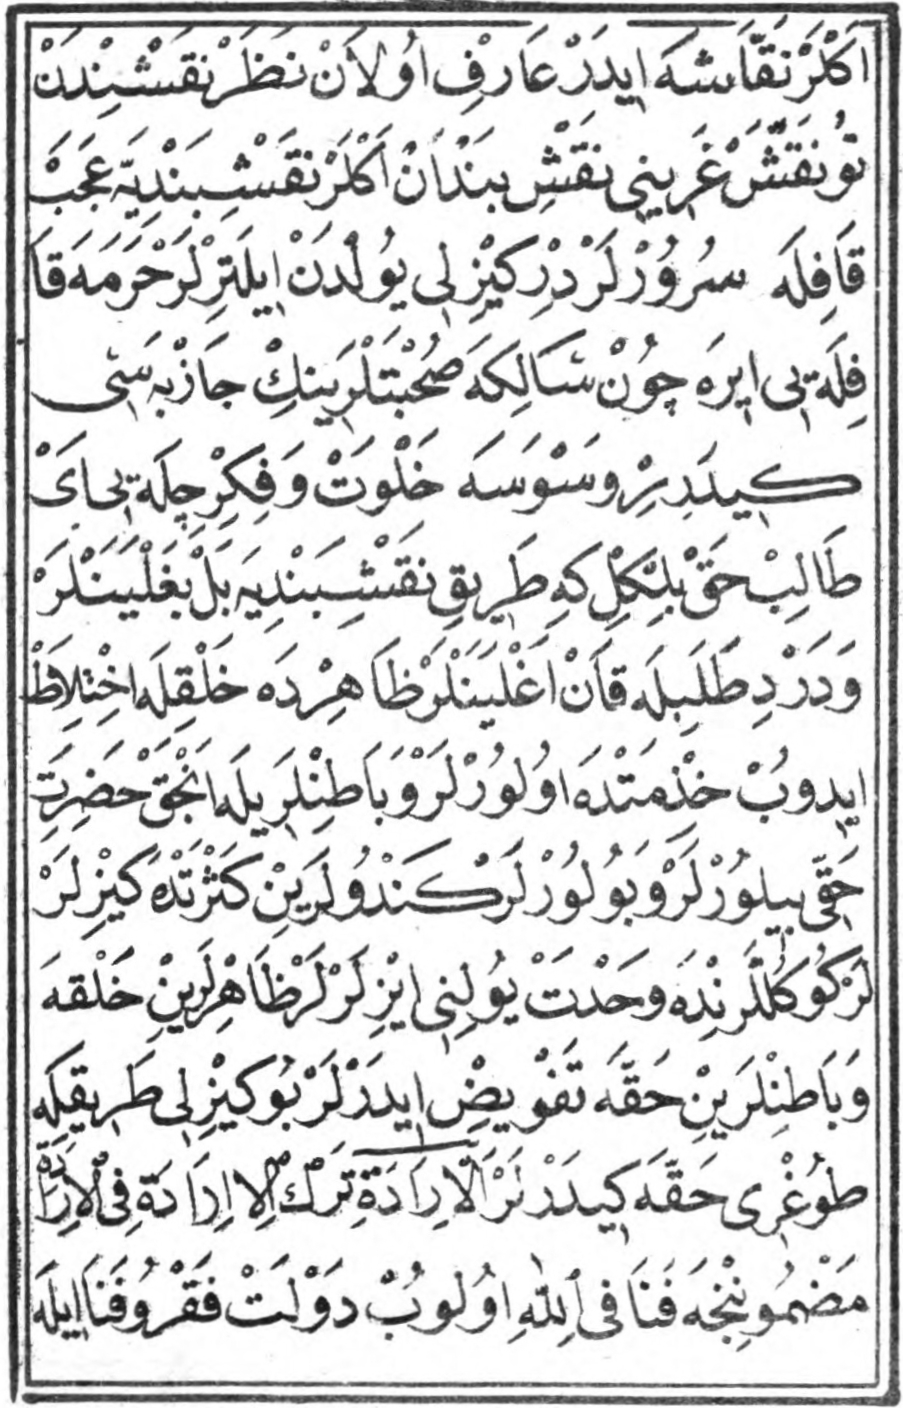 اَكْلَرْ نَقَّاشَه اِيدَرْ عَارِفْ اُولَانْ نَظَرْ نَقْشِنْدَنْ
تُو نَقْشَ غَرِيبْنِي نَقْشِ بَنْدَانْ اَكْلَرْ نَقْشِبَنْدِيَه عَجَبْ
قَافِلَه سُرُورْلَرْدِرْ كِيزْلِي يُولْدَنْ اِيلَتِرْلَرْ حَرَمَه قَا
فِلَه يِي اِيرَه چُونْ سَالِكَه صُحْبَتْلَرِينِكْ جَازْبَه سِي
كِيدَرِرْ وَسْوَسَه خَلْوَتْ وَفِكِرْ چِلَه يِي اَىْ
طَالِبْ حَقْ بِلْكِلْ كِه طَرِيقِ نَقْشِبَنْدِيَه بَلْ بَغْلَيَنْلَرْ
وَدَرْدِ طَلَبِيلَه قَانْ اَغْلَيَنْلَرْ ظَاهِرْدَه خَلْقِلَه اِخْتِلَاطْ
اِيدُوبْ خِذْمَتْدَه اُولُورْلَرْ وَبَاطِنْلَرِيلَه اَنْجَقْ حَضِرَتِ
حَقِّي بِيلُورْلَرْ وَبُولُورْلَرْ كَنْدُولَرِينْ كَثْرَتْدَه كِيزِلَرْ
لَرْ كُوكُلْلَرِنْدَه وَحْدَتْ يُولِنِي اِيزِلَرْلَرْ ظَاهِرْلَرِينْ خَلْقَه
وَبَاطِنْلَرِينْ حَقَّه تَفْوِيضْ اِيدَرْلَرْ بُو كِيزْلِي طَرِيقِلَه
طُوغْرِي حَقَّه كِيدَرْلَرْ اَلْاِرَادَةُ تَرْكُ الْاِرَادَةِ فِي الْاِرَادَةِ
مَضْمُونِنْجَه فَنَا فِي اللّٰهِ اُولُوبْ دَوْلَتْ فَقْرُ وَفَنَا اِيلَه